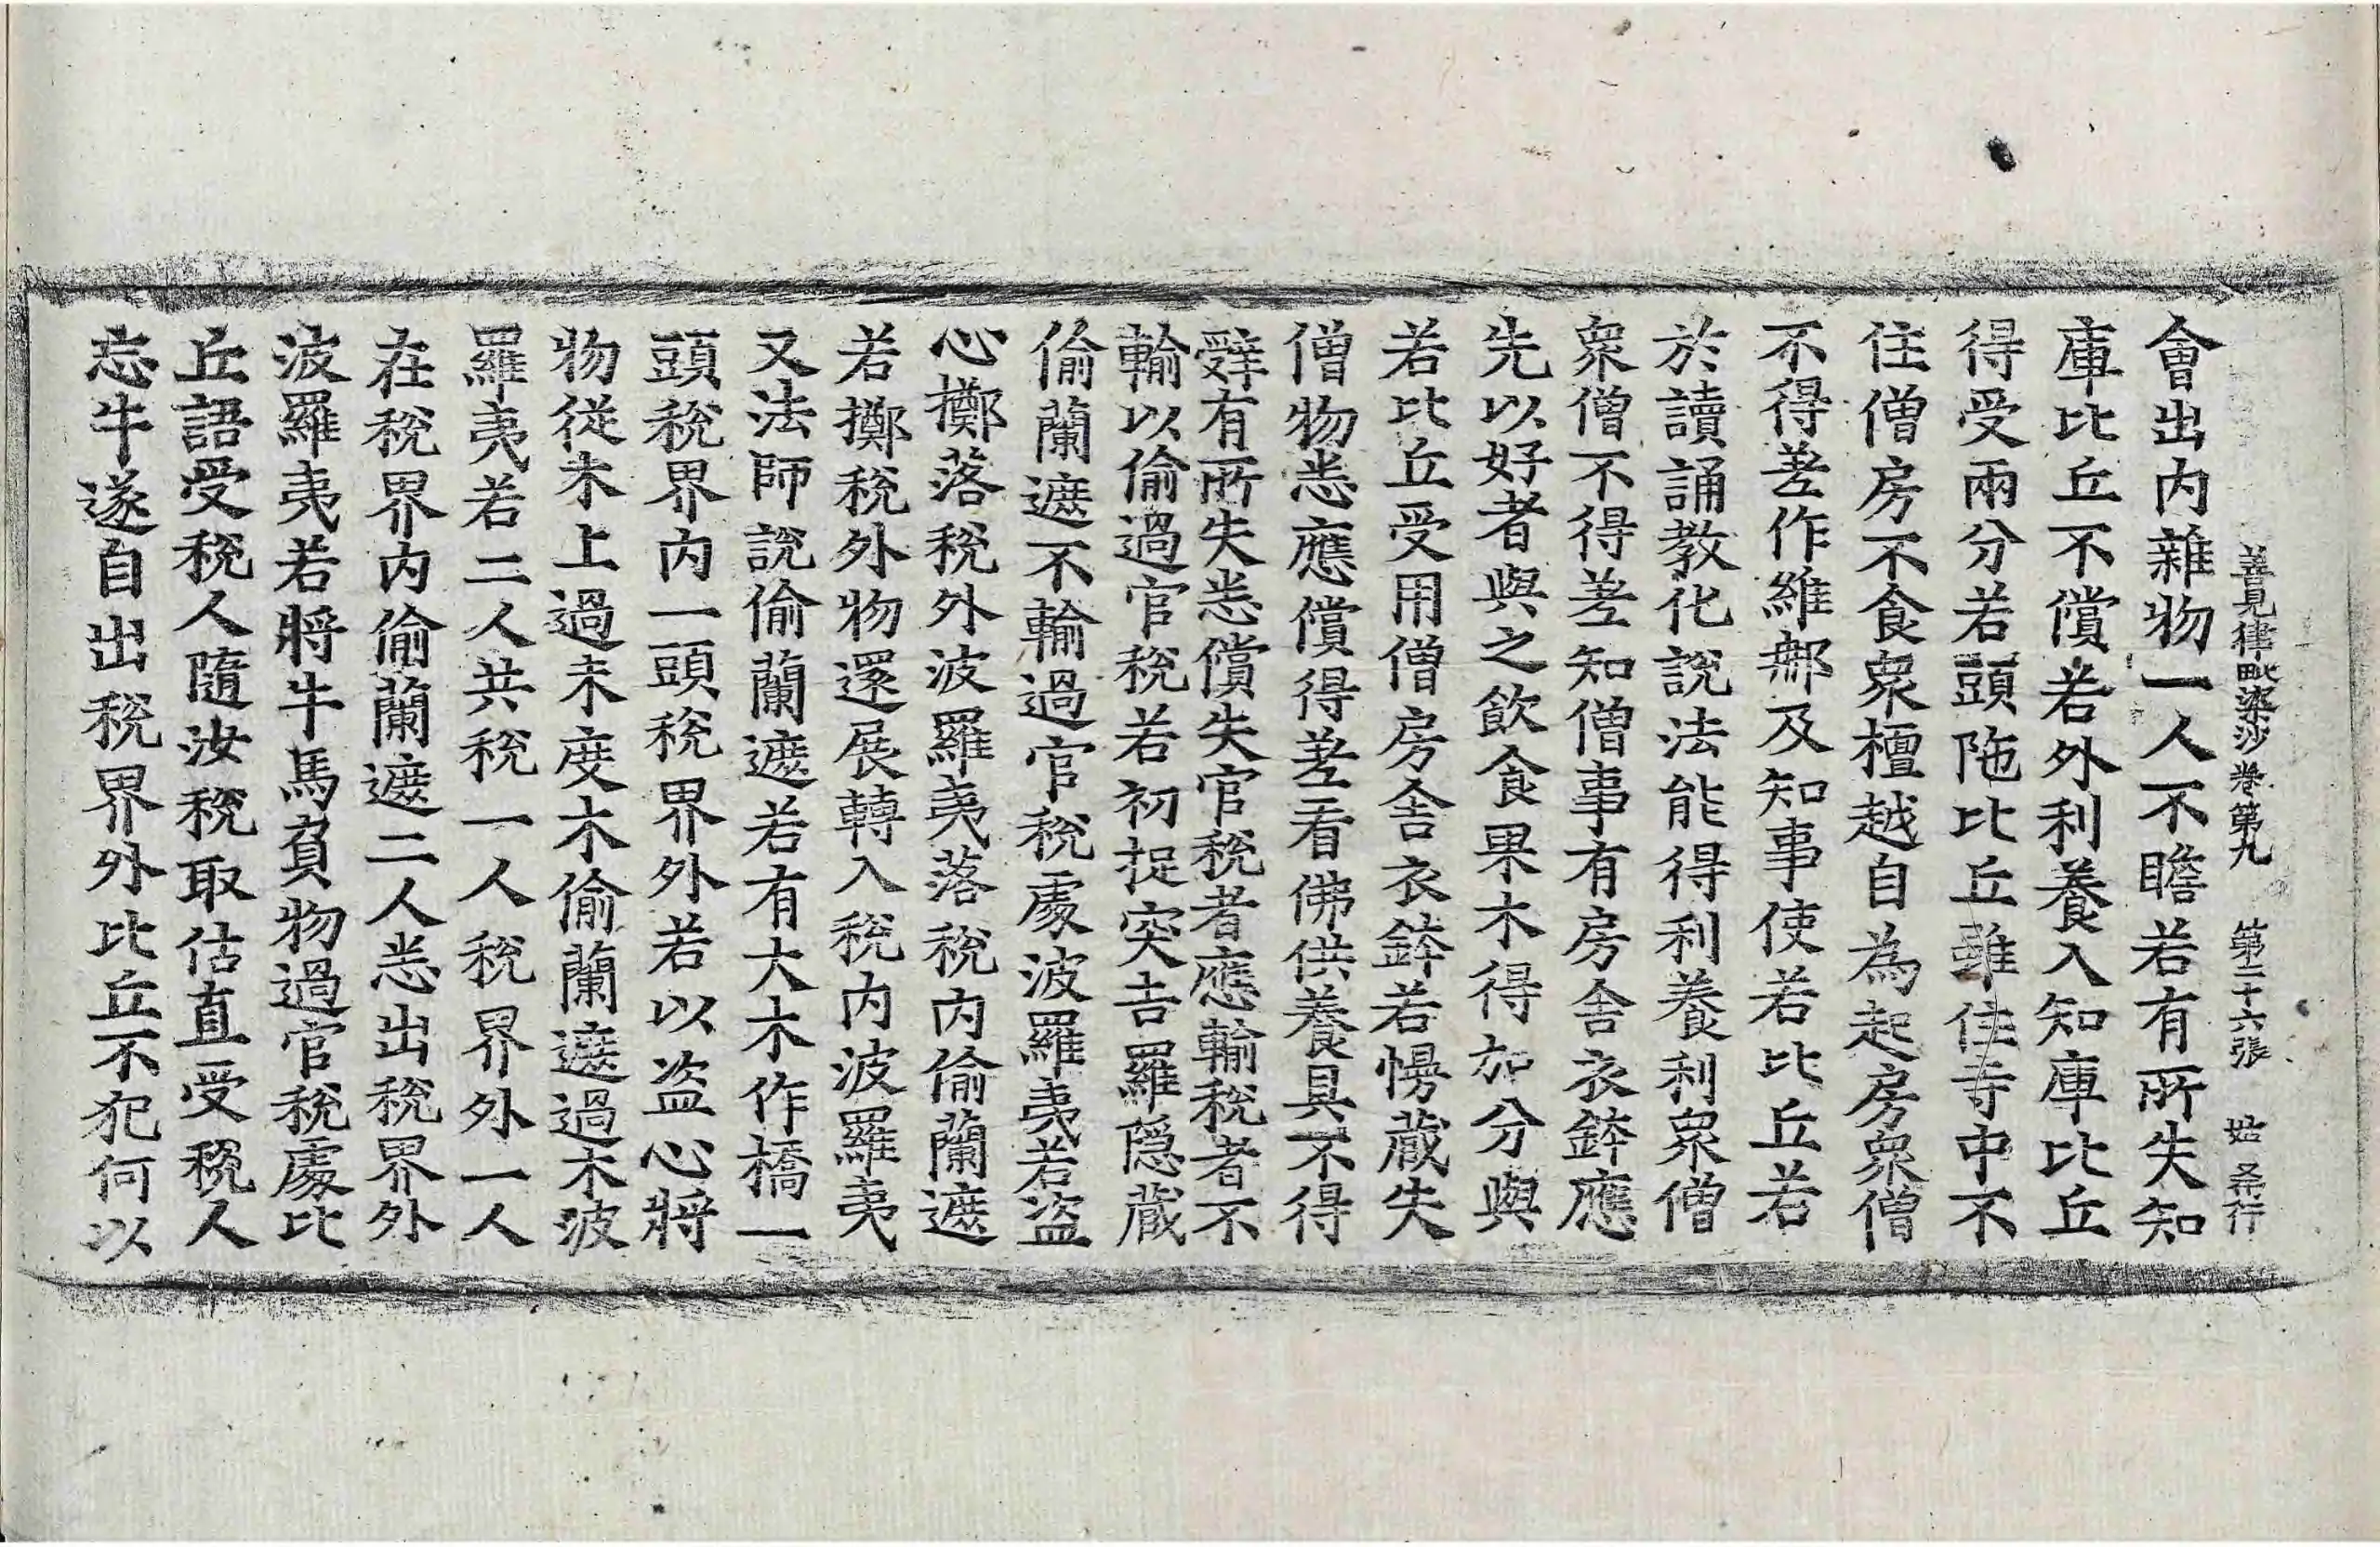 善見律毗婆沙卷第九 第二十六張 姑
會出内雜物一人不瞻若有所失知
庫比丘不償若外利養入知庫比丘
得受兩分若頭陁比丘雖住寺中不
住僧房不食衆檀越自為起房衆僧
不得差作維那及知事使若比丘若
於讀誦教化說法能得利養利衆僧
衆僧不得差知僧事有房舎衣鉢應
先以好者與之飲食果木得加分與
若比丘受用僧房舎衣鉢若慢藏失
僧物悉應償得差看佛供養具不得
辝有所失悉償失官稅者應輸稅者不
輸以偷過官稅若初捉突吉羅隱藏
偷蘭遮不輸過官稅處波羅夷若盜
心擲落稅外波羅夷落稅内偷蘭遮
若擲稅外物還展轉入稅内波羅夷
又法師說偷蘭遮若有大木作橋一
頭稅界内一頭稅界外若以盜心將
物從木上過未度木偷蘭遮過木波
羅夷若二人共稅一人稅界外一人
在稅界内偷蘭遮二人悉出稅界外
波羅夷若將牛馬負物過官稅處比
丘語受稅人隨汝稅取估直受稅人
忘牛遂自出稅界外比丘不犯何以